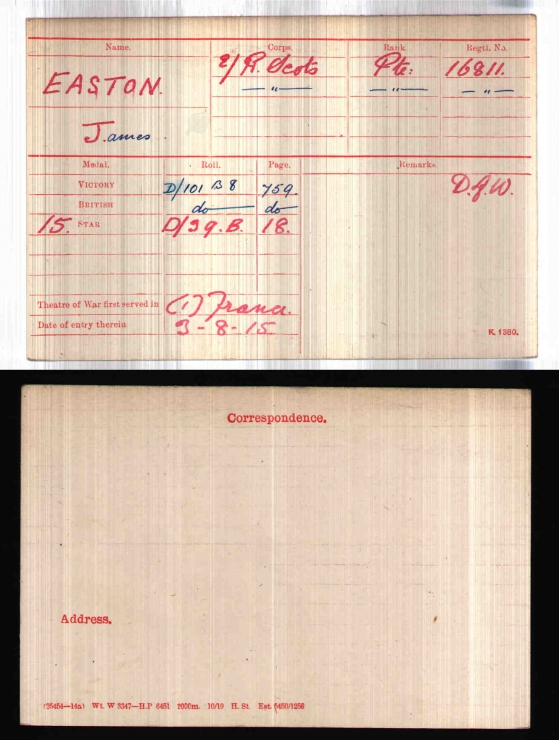 Name. Corps. Rank Regtl. No.
EASTON. 2/R. Scots Pte: 16811.
James. — " — — " — — " —
Medal. Roll. Page. Remarks.
VICTORY D/101 B 8 759.
BRITISH do do
15. STAR D/3 9. B. 18.
D.G.W.
Theatre of War first served in (1) France.
Date of entry therein 3-8-15
K. 1380.
Correspondence.
Address.
(36454—14a) Wt. W 3347—H.P 6451 2000m. 10/19 H. St. Est. 5450/1256